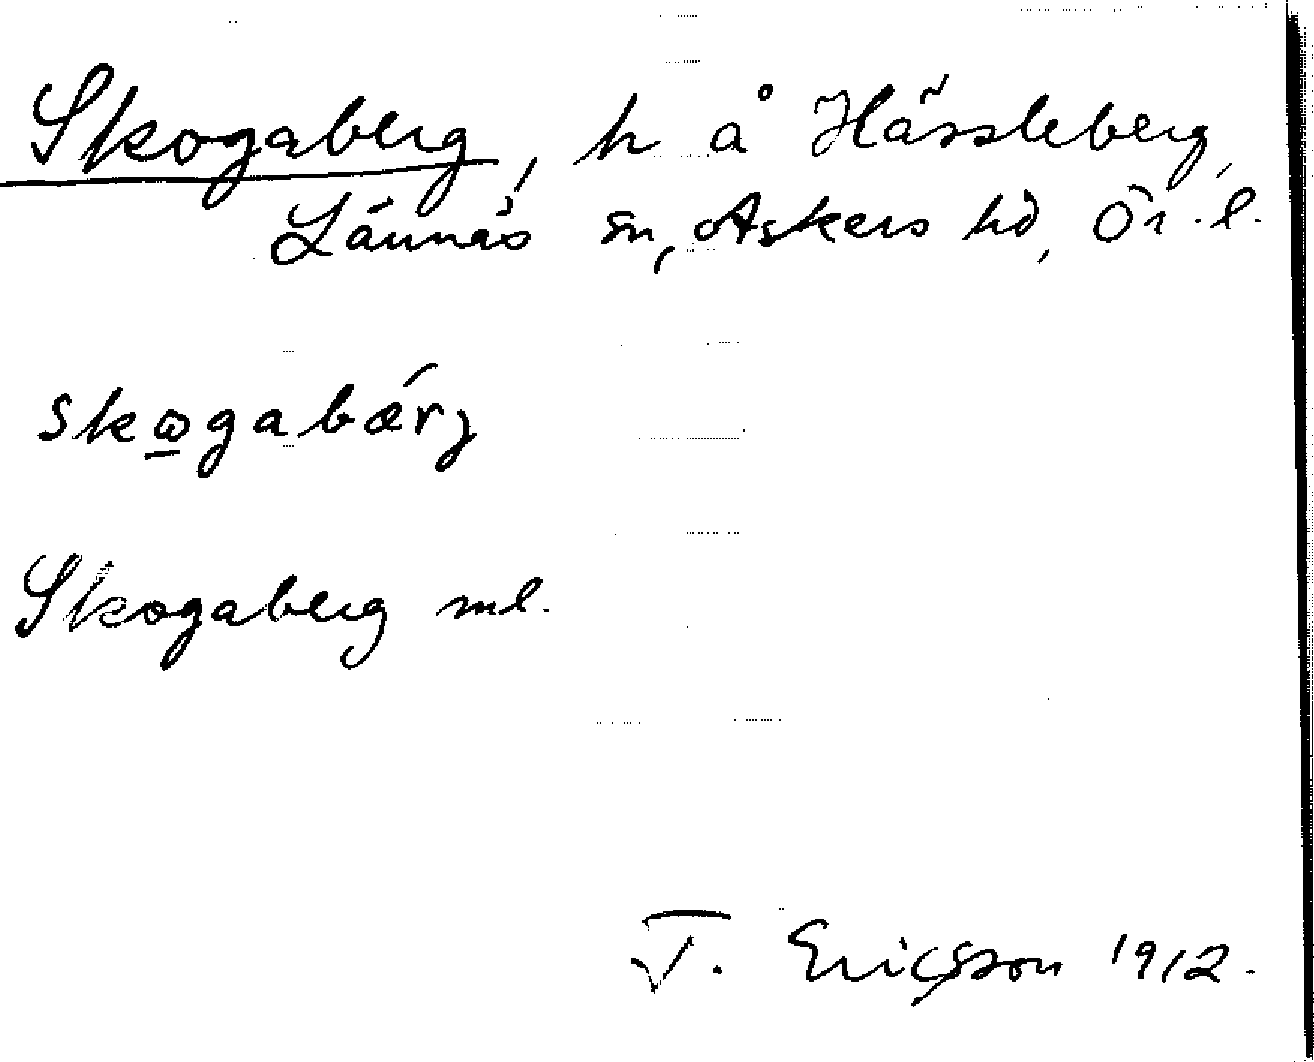 Skogaberg, h å Hässleberg,
Lännäs sn, Askers hd, Ör. l.
skωgabærȷ
Skogaberg ml.
T. Ericsson 1912.